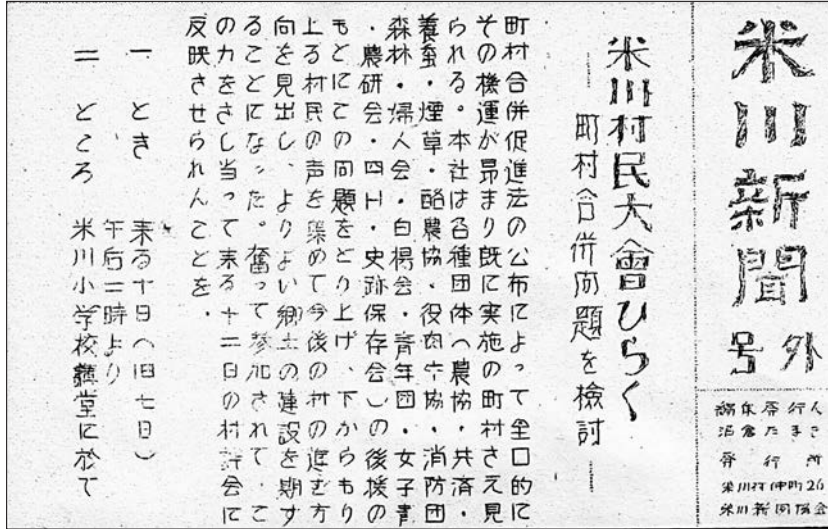 米川新聞
号外
編集発行人
沼倉たまき
発行所
米川村仲町26
米川新聞協会
米川村民大會ひらく
――町村合併問題を検討――
町村合併促進法の公布によって全口的に
その機運が昻まり既に実施の町村さえ見
られる。本社は各種団体(農協・共済・
養蚕・煙草・酪農協・役肉牛協・消防団
森林・婦人会・白楊会・青年団・女子青
・農研会・四H・史跡保存会)の後援の
もとにこの問題をとり上げ、下からもり
上る村民の声を集めて今後の村の進む方
向を見出し、よりよい郷土の建設を期す
ることになった。奮って参加されて、こ
の力をさし当って来る十二日の村議会に
反映させられんことを.
一 とき 来る十日(旧七日)
午后二時より
二 ところ 米川小学校講堂に於て